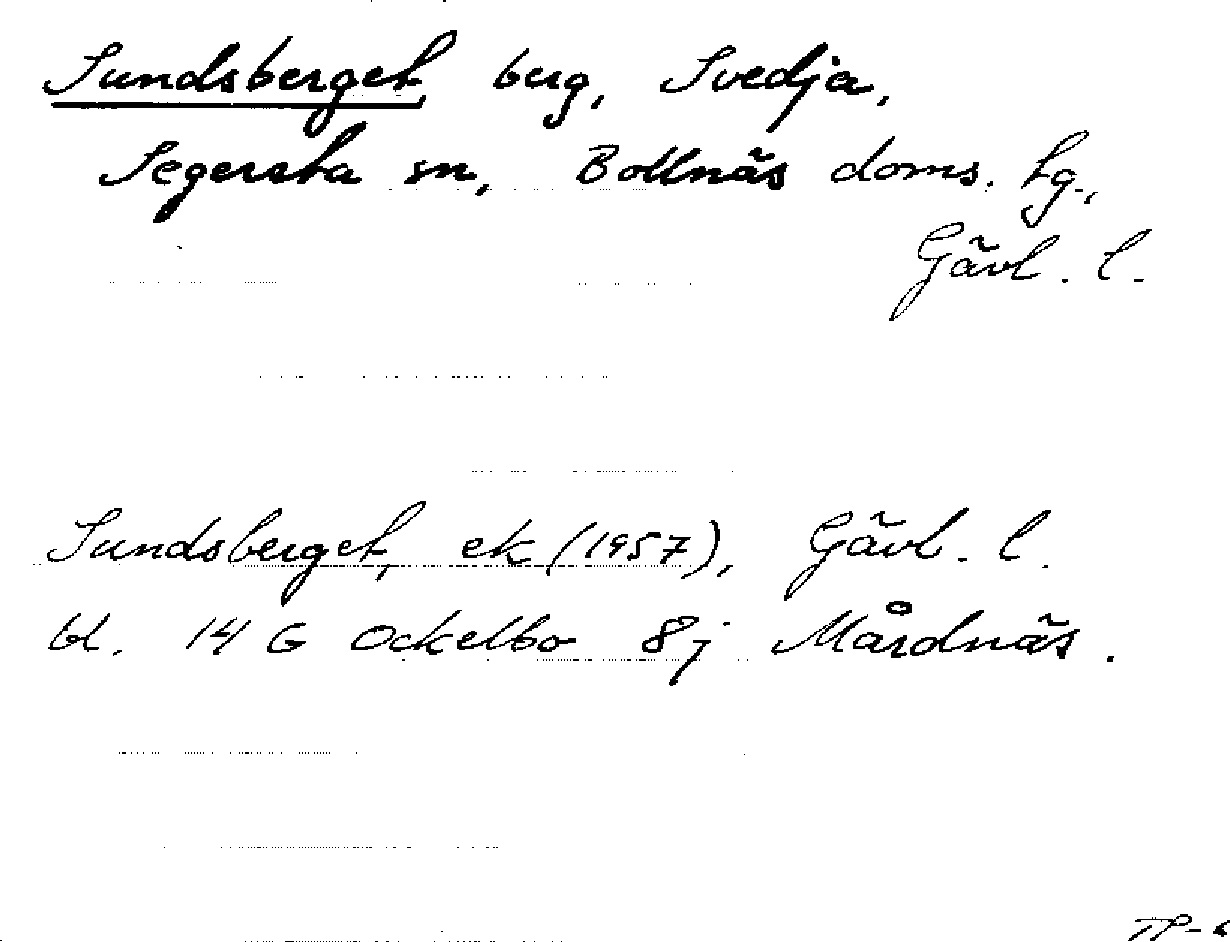 Sundsberget, berg, Svedja,
Segersta sn, Bollnäs doms. hg.,
Gävl. l.
Sundsberget, ek (1957), Gävl. l.
bl. 14 G Ockelbo 8j Mårdnäs.